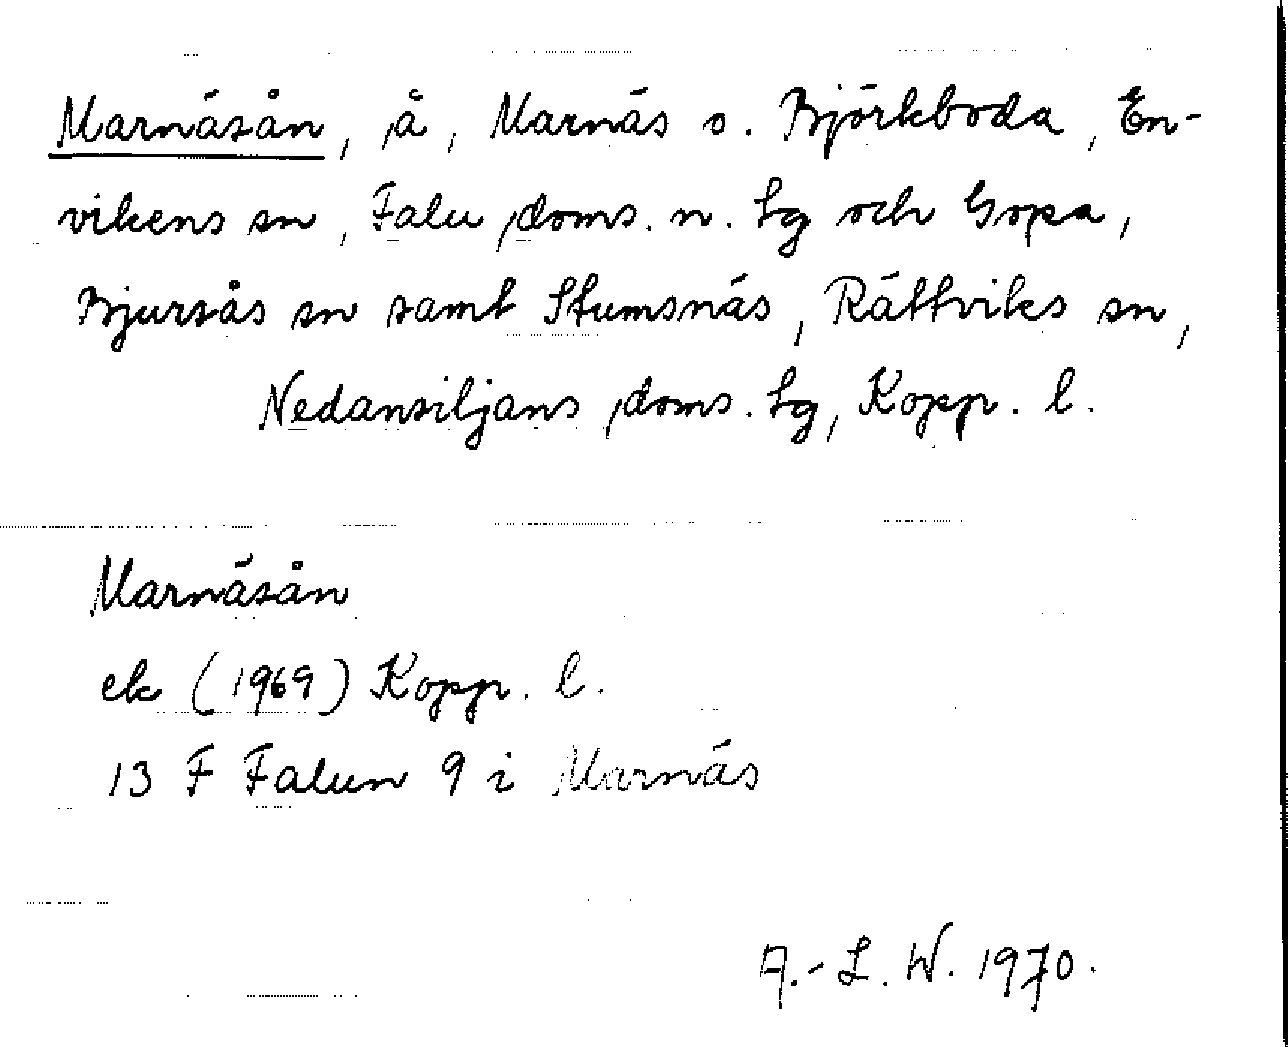 Marnäsån, å, Marnäs o. Björkboda, En-
vikens sn, Falu doms. n. tg och Gopa,
Bjursås sn samt Stumsnäs, Rättviks sn,
Nedansiljans doms. tg, Kopp. l.
Marnäsån
ek (1969) Kopp. l.
13 F Falun 9 i Marnäs
A.-L. W. 1970.